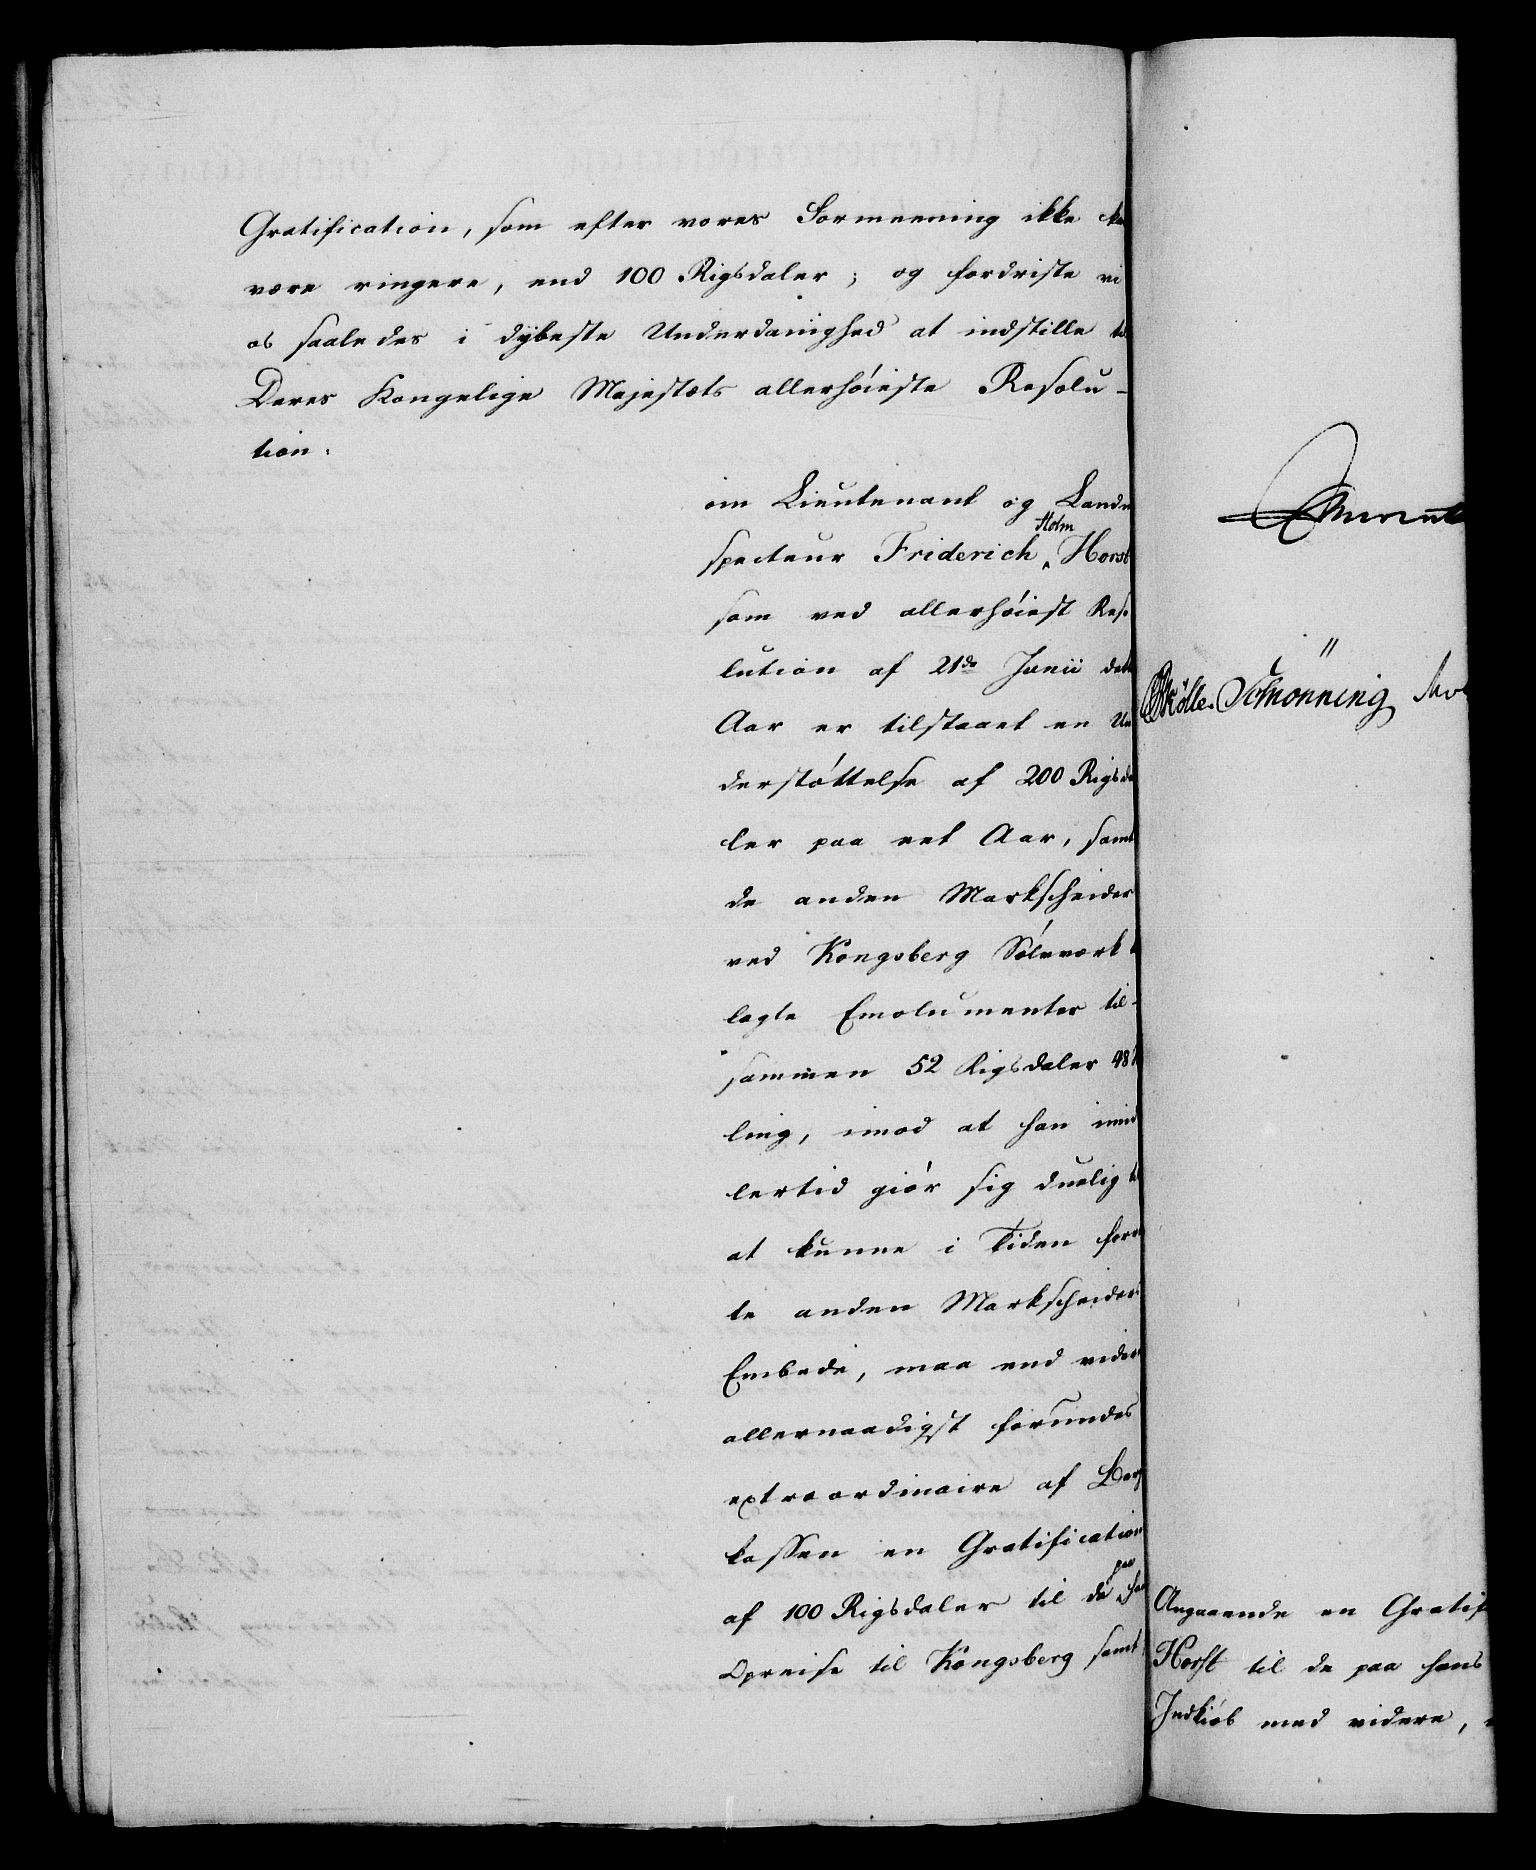 Gratification, som efter vores Formeening ikke
være ringere, end 100 Rigsdaler; og fordriste vi
os saaledes i dybeste Underdanighed at indstille
Deres Kongelige Majestæts allerhöieste Resolu-
tion:
om Lieutenant og Landn
Holm
specteur Friderich Horst
som ved allerhöiest Reso
lution af 21de Junii dette
Aar er tilstaaet en Un
derstöttelse af 200 Rigsda
ler paa eet Aar, samt
de anden Markscheider
ved Kongsberg Sölvværk
lagte Emolumenter til-
sammen 52 Rigsdaler 48
ling, imod at han imid
lertid giör sig duelig
at kunne i Tiden forre
te anden Markscheider
Embede, maa end videre
allernaadigst forundes
extraordinaire af Berg
kassen en Gratification
paa
af 100 Rigsdaler til de
Opreise til Kongsberg samt
Schönning
Angaaende en Gratif
Horst til de paa hans
Indkiöb med videre,